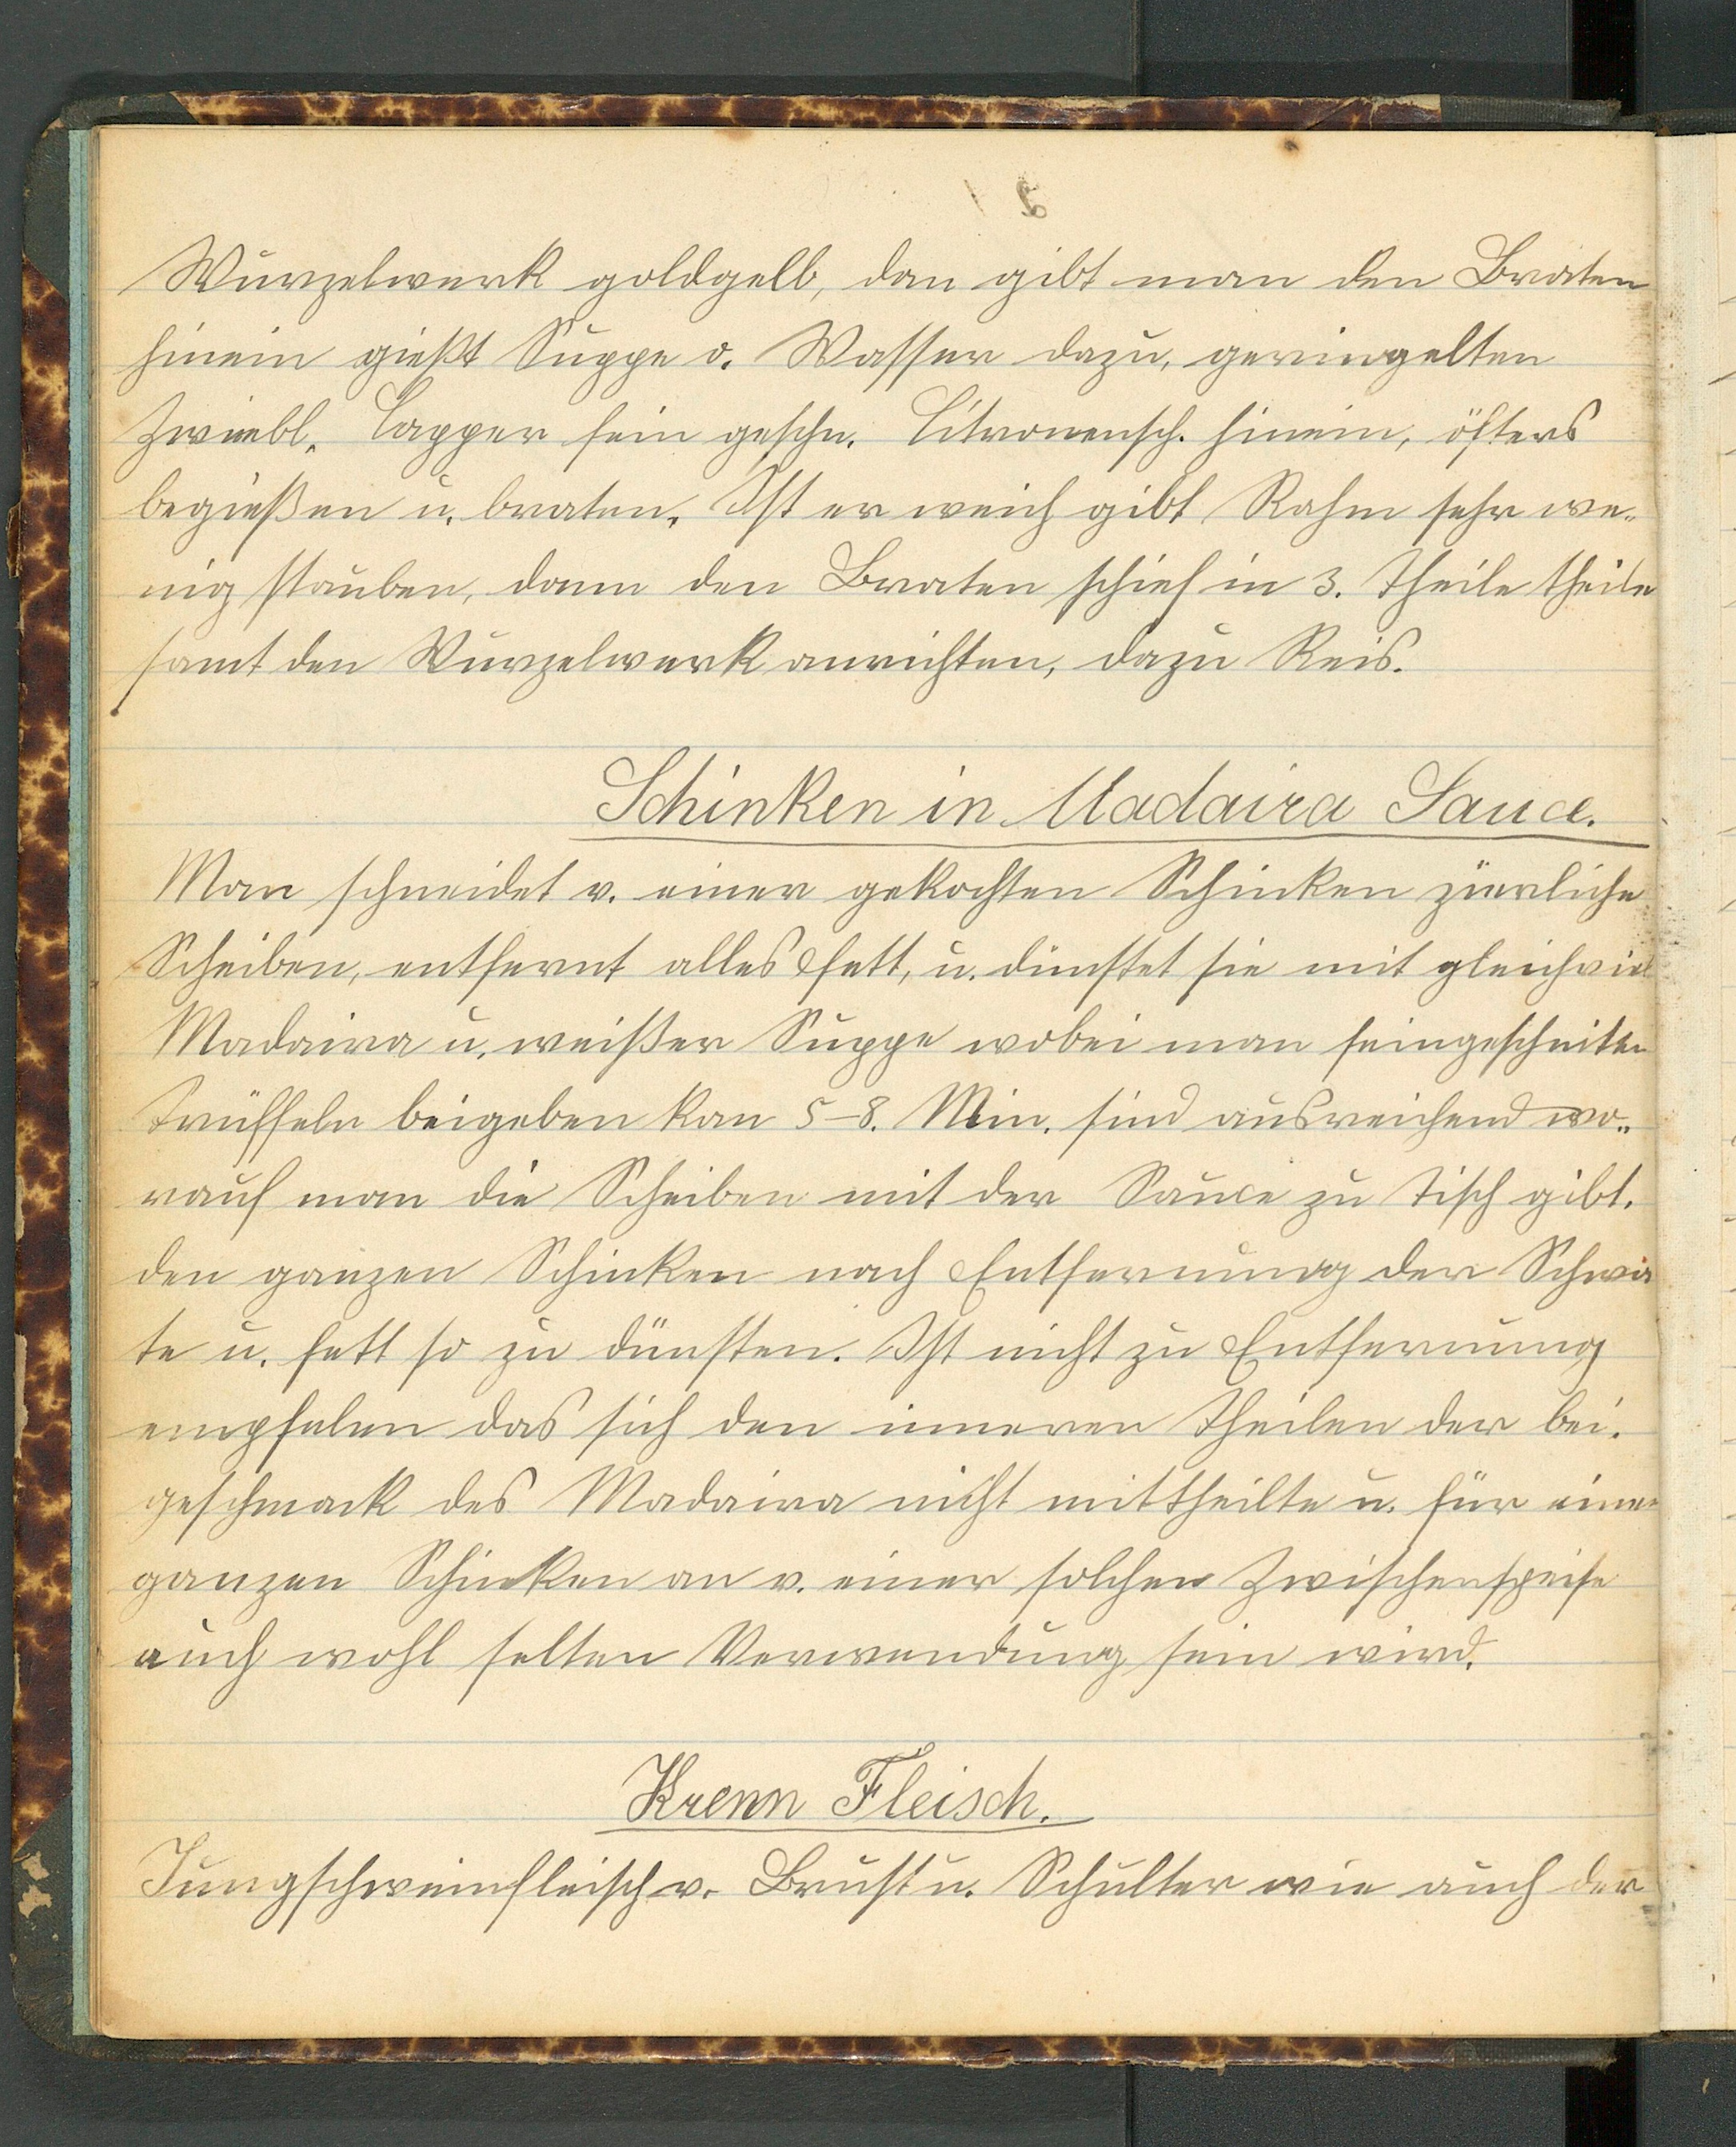 Wurzelwerk goldgelb, dan gibt man den Braten
hinein gießt Suppe o. Wasser dazu, geringelten
Zwiebl, Capper fein geschn. Citronensch. hinein, öfters
begießen u. braten. Ist er weich gibt Rahm sehr we-
nig stauben, dann den Braten schief in 3. Theile theilen
samt den Wurzelwerk anrichten, dazu Reis.
Schinken in Madaira Sauce.
Man schneidet v. einer gekochten Schinken zierliche
Scheiben, entfernt alles Fett, u. dünstet sie mit gleichviel
Madaira u. weißer Suppe wobei man feingeschniten
Trüffeln beigeben kan 5-8. Min. sind ausreichend wo-
rauf man die Scheiben mit der Sauce zu Tisch gibt.
den ganzen Schinken nach Entfernung der Schwa
te u. fett so zu dünsten. Ist nicht zu Entfernung
empfelen das sich den inneren Theilen der bei.
geschmack des Madaira nicht mittheilte u. für einen
ganzen Schinken an v. einer solchen Zwischenspeise
auch wohl selten Verwendung sein wird.
Krenn Fleisch.
Jungschweinfleisch v. Brust u. Schulter wie auch der